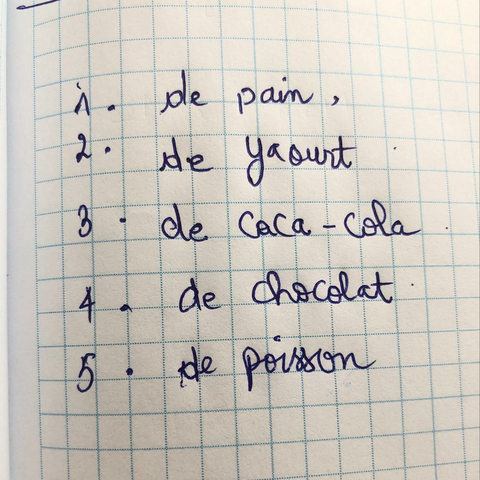 1. de pain,
2. de yaourt.
3. de coca-cola.
4. de chocolat.
5. de poisson